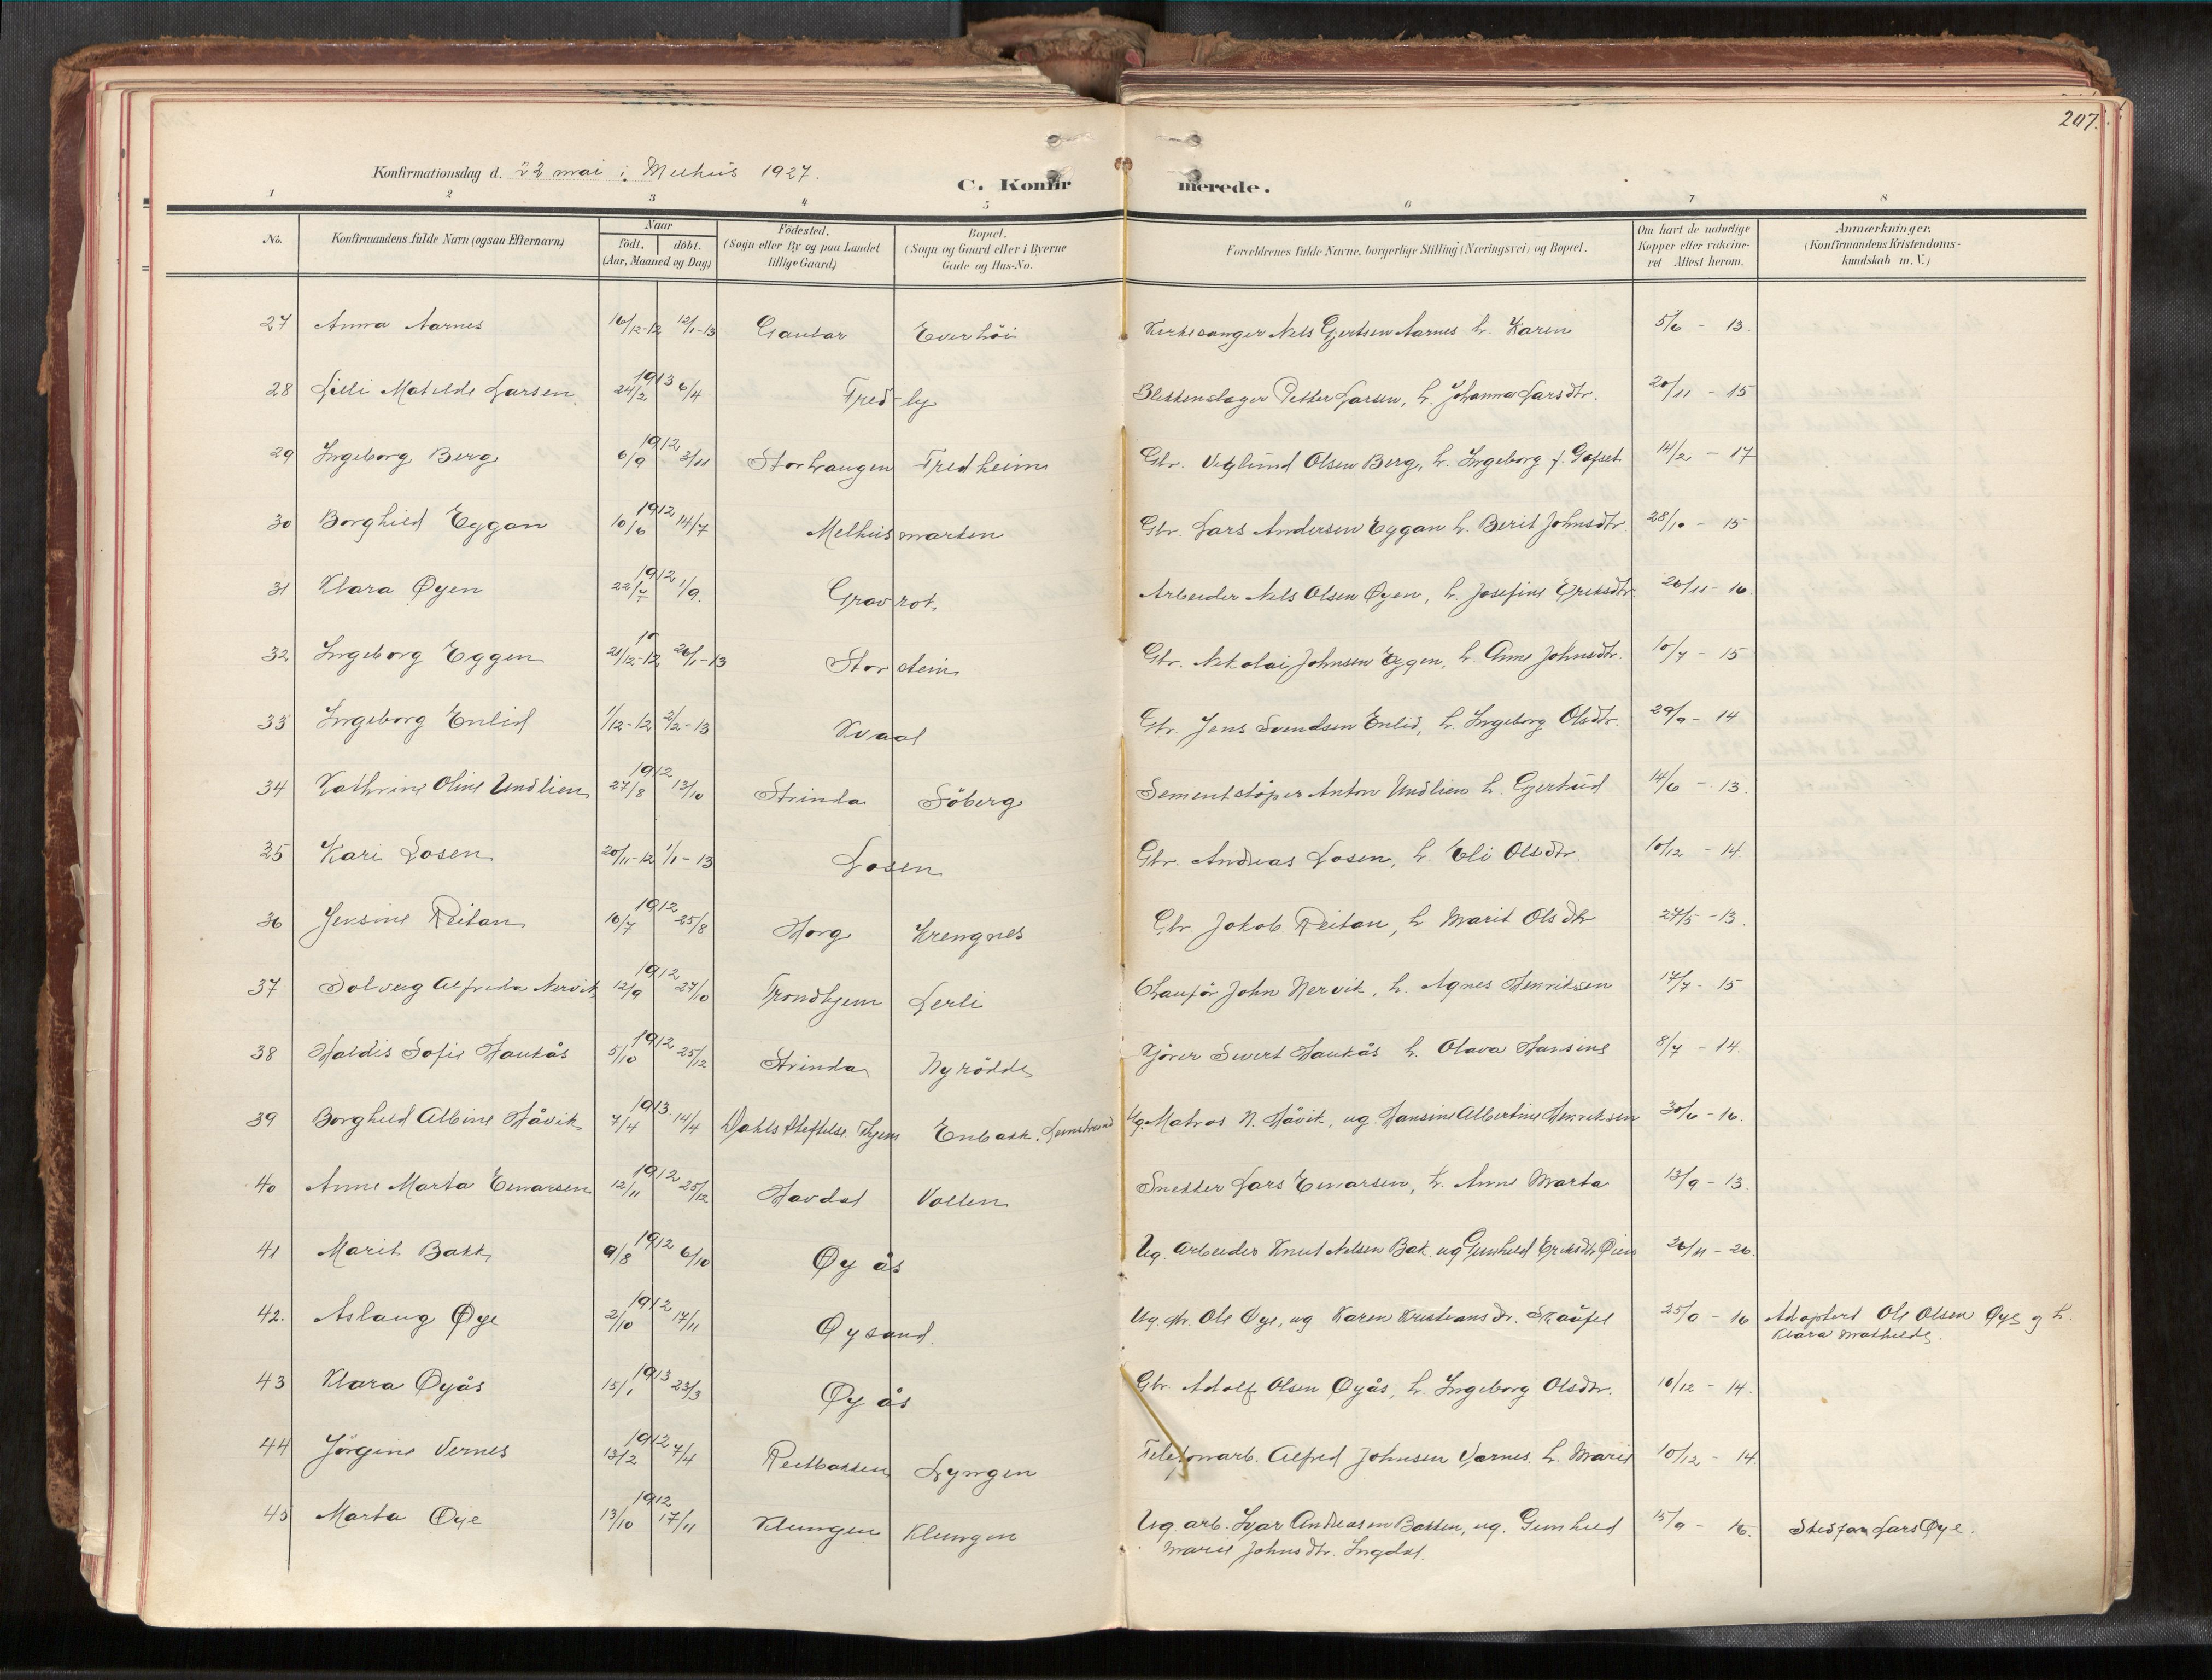 207.
Konfirmationsdag d. 22 mai i Melhus 1927.
C. Konfirmerede.
1 2 3 4 5 6 7 8
No. Konfirmandens fulde Navn (ogsaa Efternavn) Naar født. døbt. (Aar, Maaned og Dag) Fødested. (Sogn eller By og paa Landet tillige Gaard) Bopæl. (Sogn og Gaard eller i Byerne Gade og Hus-No. Forældrenes fulde Navne, borgerlige Stilling (Næringsvei) og Bopæl. Om havt de naturlige Kopper eller vakcineret Attest herom. Anmærkninger. (Konfirmandens Kristendomskundskab m. V.)
27 Anna Aarnes 16/12-12 12/1-13 Gaular Everhöi Kirkesanger Nils Gjertsen Aarnes h. Karen 5/6 - 13.
28 Lilli Matilde Larsen 1913 24/2 6/4 Fredly Blikkenslager Petter Larsen, h. Johanna Larsdtr. 20/11 - 15
29 Ingeborg Berg 1912 6/9 3/11 Storhaugen Fredheim Gbr. Olsen Berg, h. Ingeborg f. 14/2 - 17
30 Borghild Eggan 1912 10/6 14/7 Melhusmarken Gbr. Lars Andersen Eggan h. Berit Johnsdtr. 28/10 - 15
31 Klara Øyen 1912 22/7 1/9. Gravrok Arbeider Nils Olsen Øyen, h. Josefine Eriksdtr 20/11 - 16.
32 Ingeborg Eggen 21/12-12 26/1-13 Storstein Gbr. Nikolai Johnsen Eggen, h. Anne Johnsdtr. 10/7 - 15
33 Ingeborg Enlid 1/12-12 2/2-13 Kvaal Gbr. Jens Svendsen Enlid, h. Ingeborg Olsdtr. 29/9 - 14
34 Kathrine Oline Undlien 1912 27/8 13/10 Strinda Söberg Sementstöper Anton Undlien h. Gjertrud 14/6 - 13.
35 Kari Losen 20/11-12 1/1-13 Losen Gbr. Andreas Losen, h. Eli Olsdtr. 10/12 - 14.
36 Jensine Reitan 1912 16/7 25/8 Horg Krengnes Gbr. Jakob Reitan, h Marit Olsdtr 27/5 - 13.
37 Solveig Alfreda Nervik 1912 12/9 27/10 Trondhjem Lerli Chauför John Nervik, h. Agnes Henriksen 17/7 - 15
38 Haldis Sofie Haukås 1912 5/10 25/12 Strinda Nyrödde Kjörer Sivert Haukås h. Olava Hansine 8/7 - 14.
39 Borghild Albine Håvik 1913. 7/4 14/4 Dahls Stiftelse Thjem Enbakk, Leinstrand Ug. Matros N. Håvik, ug. Hansine Albertine Henriksen 30/6 - 16.
40 Anne Marta Einarsen 1912 12/11 25/12 Havdal Vollen Snekker Lars Einarsen, h. Anne Marta 13/9 - 13.
41 Marit Bakk 1912 9/8 6/10 Øyås Ug. Arbeider Knut Nilsen Bak. ug Gunhild Eriksdtr Øien 26/11 - 20.
42. Aslaug Øye 1912 2/10 17/11 Øysand Ug. gbr. Ole Øye, ug Karen Kristiansdr. 25/0 - 16 Adoptert Ole Olsen Øye og h.
Klara Mathilde.
43 Klara Øyås 1913 15/1 23/3 Øyås Gbr. Adolf Olsen Øyås, h. Ingeborg Olsdtr. 16/12 - 14.
44 Jörgine Vernes 1912 13/2 7/4 Reitbakken Lyngen Telefonarb. Alfred Johnsen Værnes. h. Marie 10/12 - 14.
45 Marta Øye 1912 13/10 17/11 Klungen Klungen Ug. arb. Ivar Andreasen Bakken, ug. Gunhild 15/9 - 16. Stedfar Lars Øye.
Marie Johnsdtr. Ingdal.